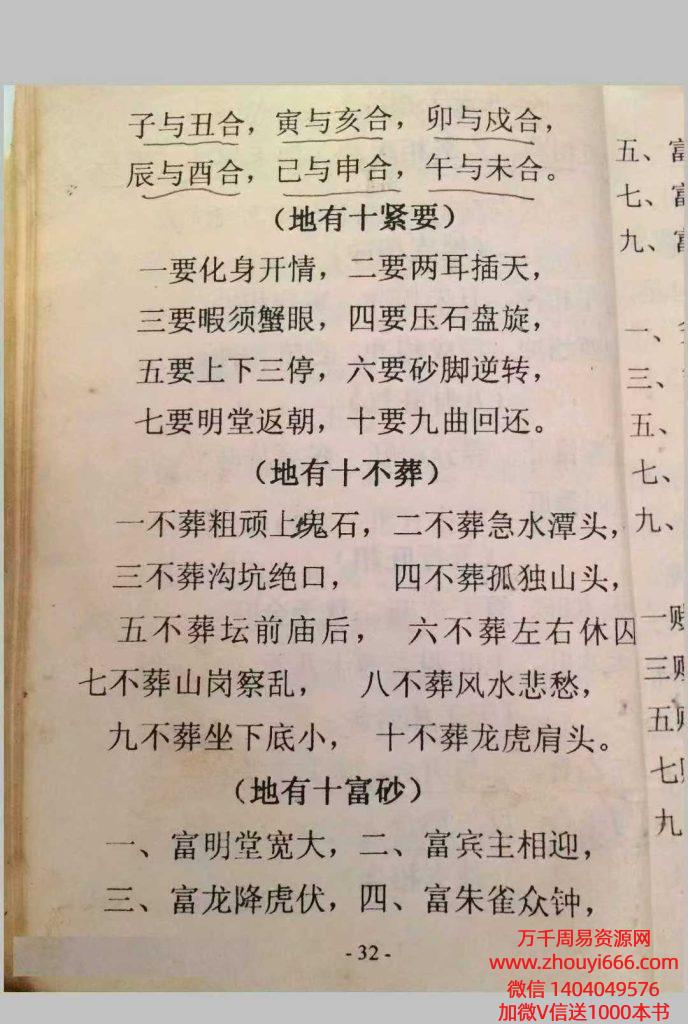 子与丑合，寅与亥合，卯与戍合，
辰与酉合，己与申合，午与未合。
（地有十紧要）
一要化身开情，二要两耳插天，
三要暇须蟹眼，四要压石盘旋，
五要上下三停，六要砂脚逆转，
七要明堂返朝，十要九曲回还。
（地有十不葬）
一不葬粗顽上块石，二不葬急水潭头，
三不葬沟坑绝口，四不葬孤独山头，
五不葬坛前庙后，六不葬左右休囚
七不葬山岗察乱，八不葬风水悲愁，
九不葬坐下底小，十不葬龙虎肩头。
（地有十富砂）
一、富明堂宽大，二、富宾主相迎，
三、富龙降虎伏，四、富朱雀众钟，
- 32 -
五、富
七、富
九、富
一、
三、
五、
七、
九、
一贱
三贱
五贱
七贱
九
万千周易资源网
www.zhouyi666.com
微信 1404049576
加微V信送1000本书